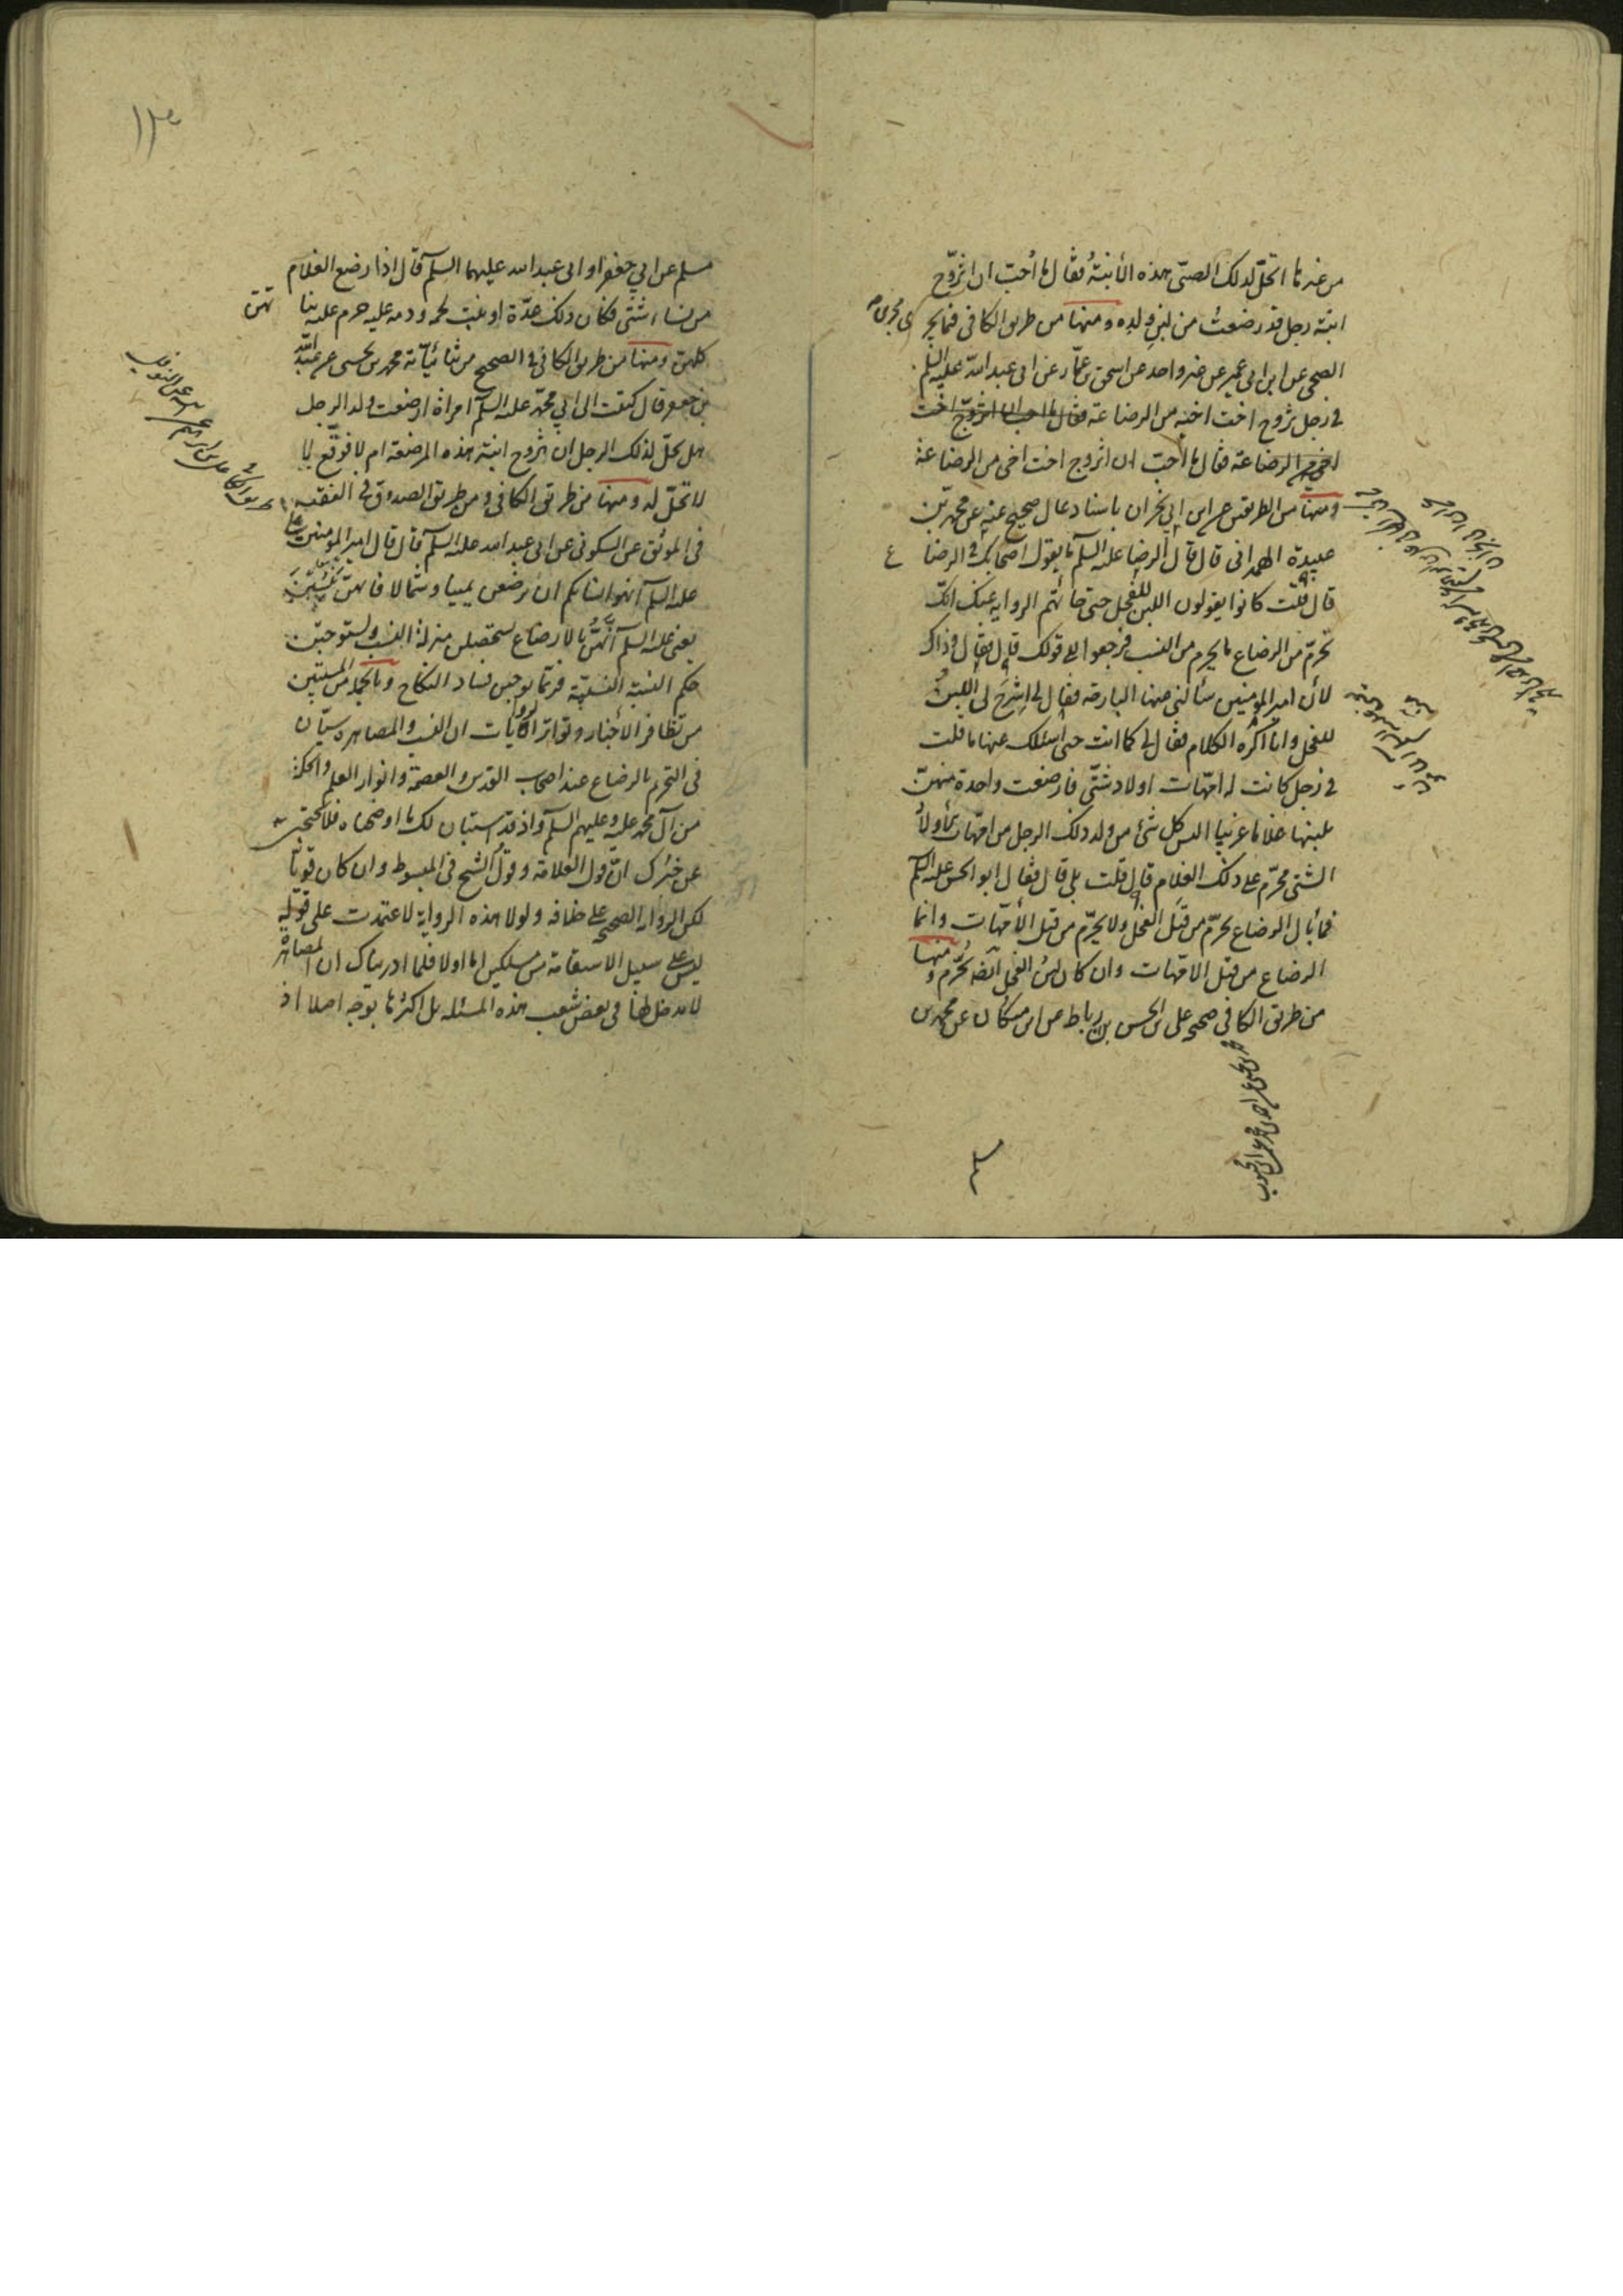 من غيرها اتحل لذلك الصبى هذه الأبنة فقال ما أحب ان اتزوج
ابنة رجل قد رضعت من لبن ولده ومنها من طريق الكافى فيما يجرى مجرى
الصحى عن ابن ابى عمير عن غير واحد عن اسحق بن عمار عن ابى عبد الله عليه السلم
فى رجل تزوج اخت اخيه من الرضاعة فقال ما احب ان اتزوج اخت
اخى من الرضاعة فقال ما أحب ان اتزوج اخت اخى من الرضاعة
ومنها من الطريقين عن ابن ابى نجران باسناد عال صحيح عنه عن محمد بن
عبيدة الهمدانى قال قال الرضا عليه السلم ما يقول اصحابك فى الرضاع
قال قلت كانوا يقولون اللبن للفحل حتى جائتهم الرواية عنك انك
تحرم من الرضاع ما يحرم من النسب فرجعوا الى قولك قال فقال وذاك
لأن امير المؤمنين سألنى عنها البارحة فقال لى اشرح لى اللبن
للفحل وانا اكره الكلام فقال لى كما انت حتى اسئلك عنها ما قلت
فى رجل كانت له امهات اولاد شتى فارضعت واحدة منهن
بلبنها غلاما غريبا اليس كل شئ من ولد ذلك الرجل من امهات الأولاد
الشتى محرم على ذلك الغلام قال قلت بلى قال فقال ابو الحسن عليه السلم
فما بال الرضاع يحرم من قبل الفحل ولا يحرم من قبل الأمهات وانما
الرضاع من قبل الامهات وان كان لبن الفحل ايضا يحرم ومنها
من طريق الكافى صحيح على بن الحسن بن رباط عن ابن مسكان عن محمد بن
١٣٠
مسلم عن ابى جعفر او ابى عبد الله عليهما السلم قال اذا رضع الغلام
من نساء شتى فكان ذلك عدة او نبت لحمه ودمه عليه حرم عليه بناتهن
كلهن ومنها من طريق الكافى فى الصحيح من ثنائياته محمد بن يحيى عن عبد الله
بن جعفر قال كتبت الى ابى محمد عليه السلم امرأة ارضعت ولد الرجل
هل يحل لذلك الرجل ان يتزوج ابنة هذه المرضعة ام لا فوقع لا
لا تحل له ومنها من طريق الكافى ومن طريق الصدوق فى الفقيه
فى الموثق عن السكونى عن ابى عبد الله عليه السلم قال قال امير المؤمنين
عليه السلم انهوا نسائكم ان يرضعن يمينا وشمالا فانهن ينسين
يعنى عليه السلم انهن بالارضاع يستحصلن منزلة النسب ويستوجبن
حكم النسبة النسبية فربما يوجبن فساد النكاح وبالجملة من المستبين
من تظافر الأخبار وتواتر الروايات ان النسب والمصاهرة سيان
فى التحريم بالرضاع عند اصحاب القدس والعصمة وانوار العلم والحكمة
من آل محمد عليه وعليهم السلم واذ قد استبان لك ما اوضحناه فلا يحتجبن
عن خبرك ان قول العلامة وقول الشيخ فى المبسوط وان كان قويا
لكن الرواية الصحيحة على خلافه ولولا هذه الرواية لاعتمدت على قوله
ليس على سبيل الاستقامة من مسلكين اما اولا فلما ادريناك ان المصاهرة
لا مدخل لها فى بعض شعب هذه المسئلة بل اكثرها بوجه اصلا اذ